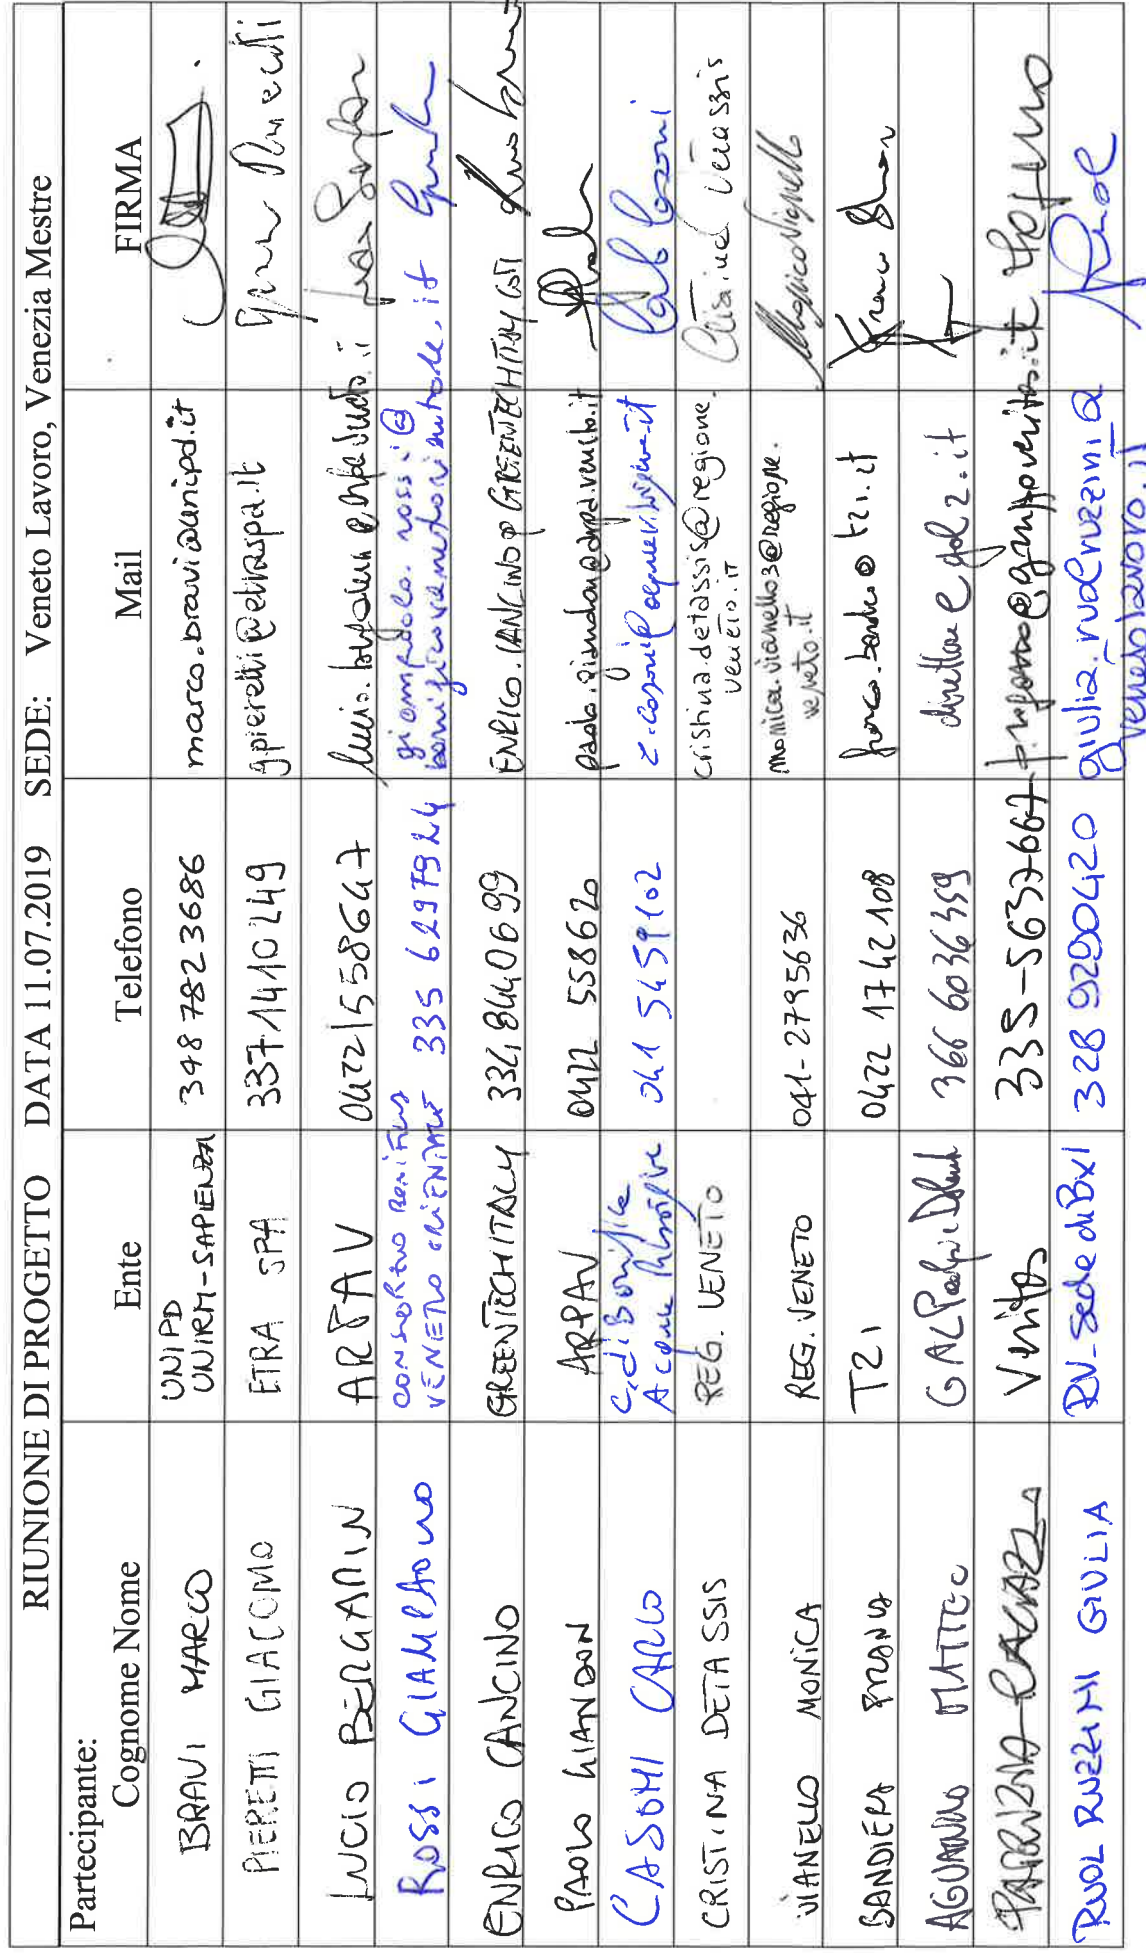 RIUNIONE DI PROGETTO DATA 11.07.2019 SEDE: Veneto Lavoro, Venezia Mestre
Partecipante:
Cognome Nome Ente Telefono Mail FIRMA
BRAVI MARCO UNIPD
UNIRM-SAPIENZA 348 7823686 marco.bravi@unipd.it
PIERETTI GIACOMO ETRA SPA 337 1410249 gpieretti@etraspa.it
LUCIO BERGAMIN ARTAV 0422/558647
ROSSI GIAMPAOLO CONSORZIO BONIFICA
VENETO ORIENTALE 335 6297924 giampaolo.rossi@
bonificavenetorientale.it
ENRICO CANCINO GREENTECHITALY 334 8440699 ENRICO.CANCINO@GREENTECHITALY.COM
PAOLO GIANDON ARPAV 0422 558620 paolo.giandon@arpa.veneto.it
CASONI CARLO C. di Bonifica
Acque Risorgive 041 5459102 Carlo Casoni
CRISTINA DETASSIS REG. VENETO cristina.detassis@regione.
veneto.it Cristina Detassis
VIANELLO MONICA REG. VENETO 041-2795636 monica.vianello3@regione.
veneto.it Monica Vianello
BANDIERA FRANCO T2i 0422 1742108 franco.bandiera@t2i.it
MATTEO GAL 366 6036359 direttore@gal2.it
Veritas 335-5637667 @gruppoveritas.it
RUOL RUZZINI GIULIA RV-Sede di Bxl 328 9290420 giulia.ruolruzzini@
venetolavoro.it